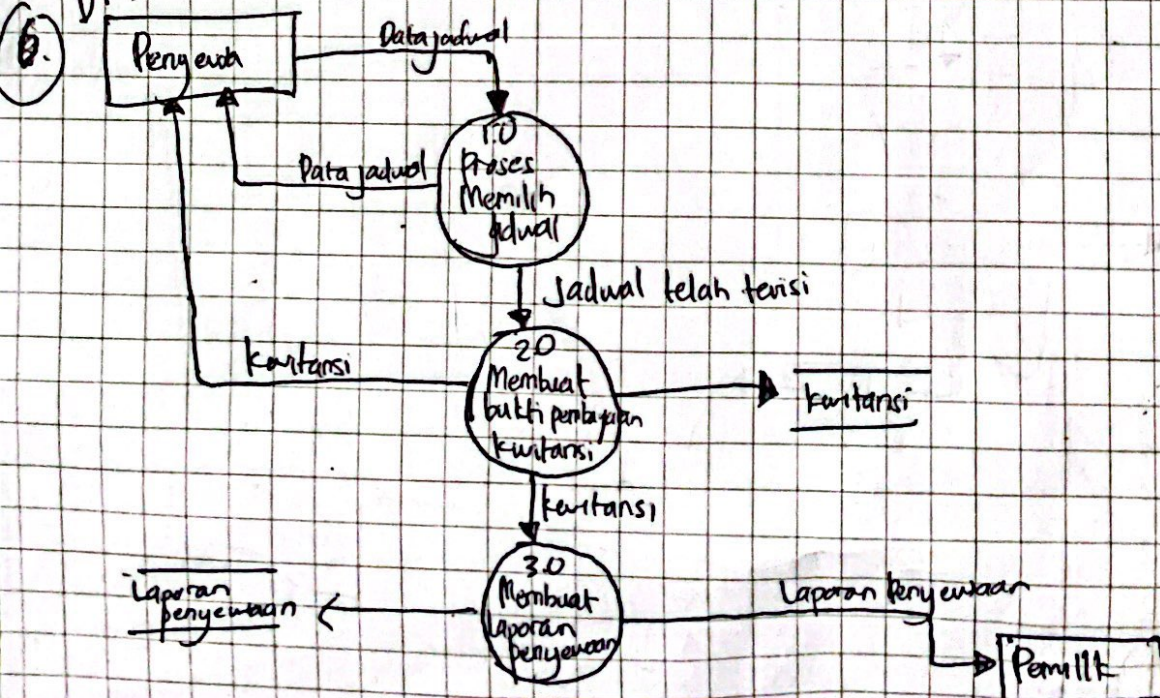 6.
Penyewa
Data jadwal
1.0
Proses
Memilih
jadwal
Data jadwal
Jadwal telah terisi
2.0
Membuat
bukti pembayaran
kwitansi
Kwitansi
kwitansi
kwitansi
3.0
Membuat
laporan
penyewaan
Laporan
penyewaan
Laporan Penyewaan
Pemilik